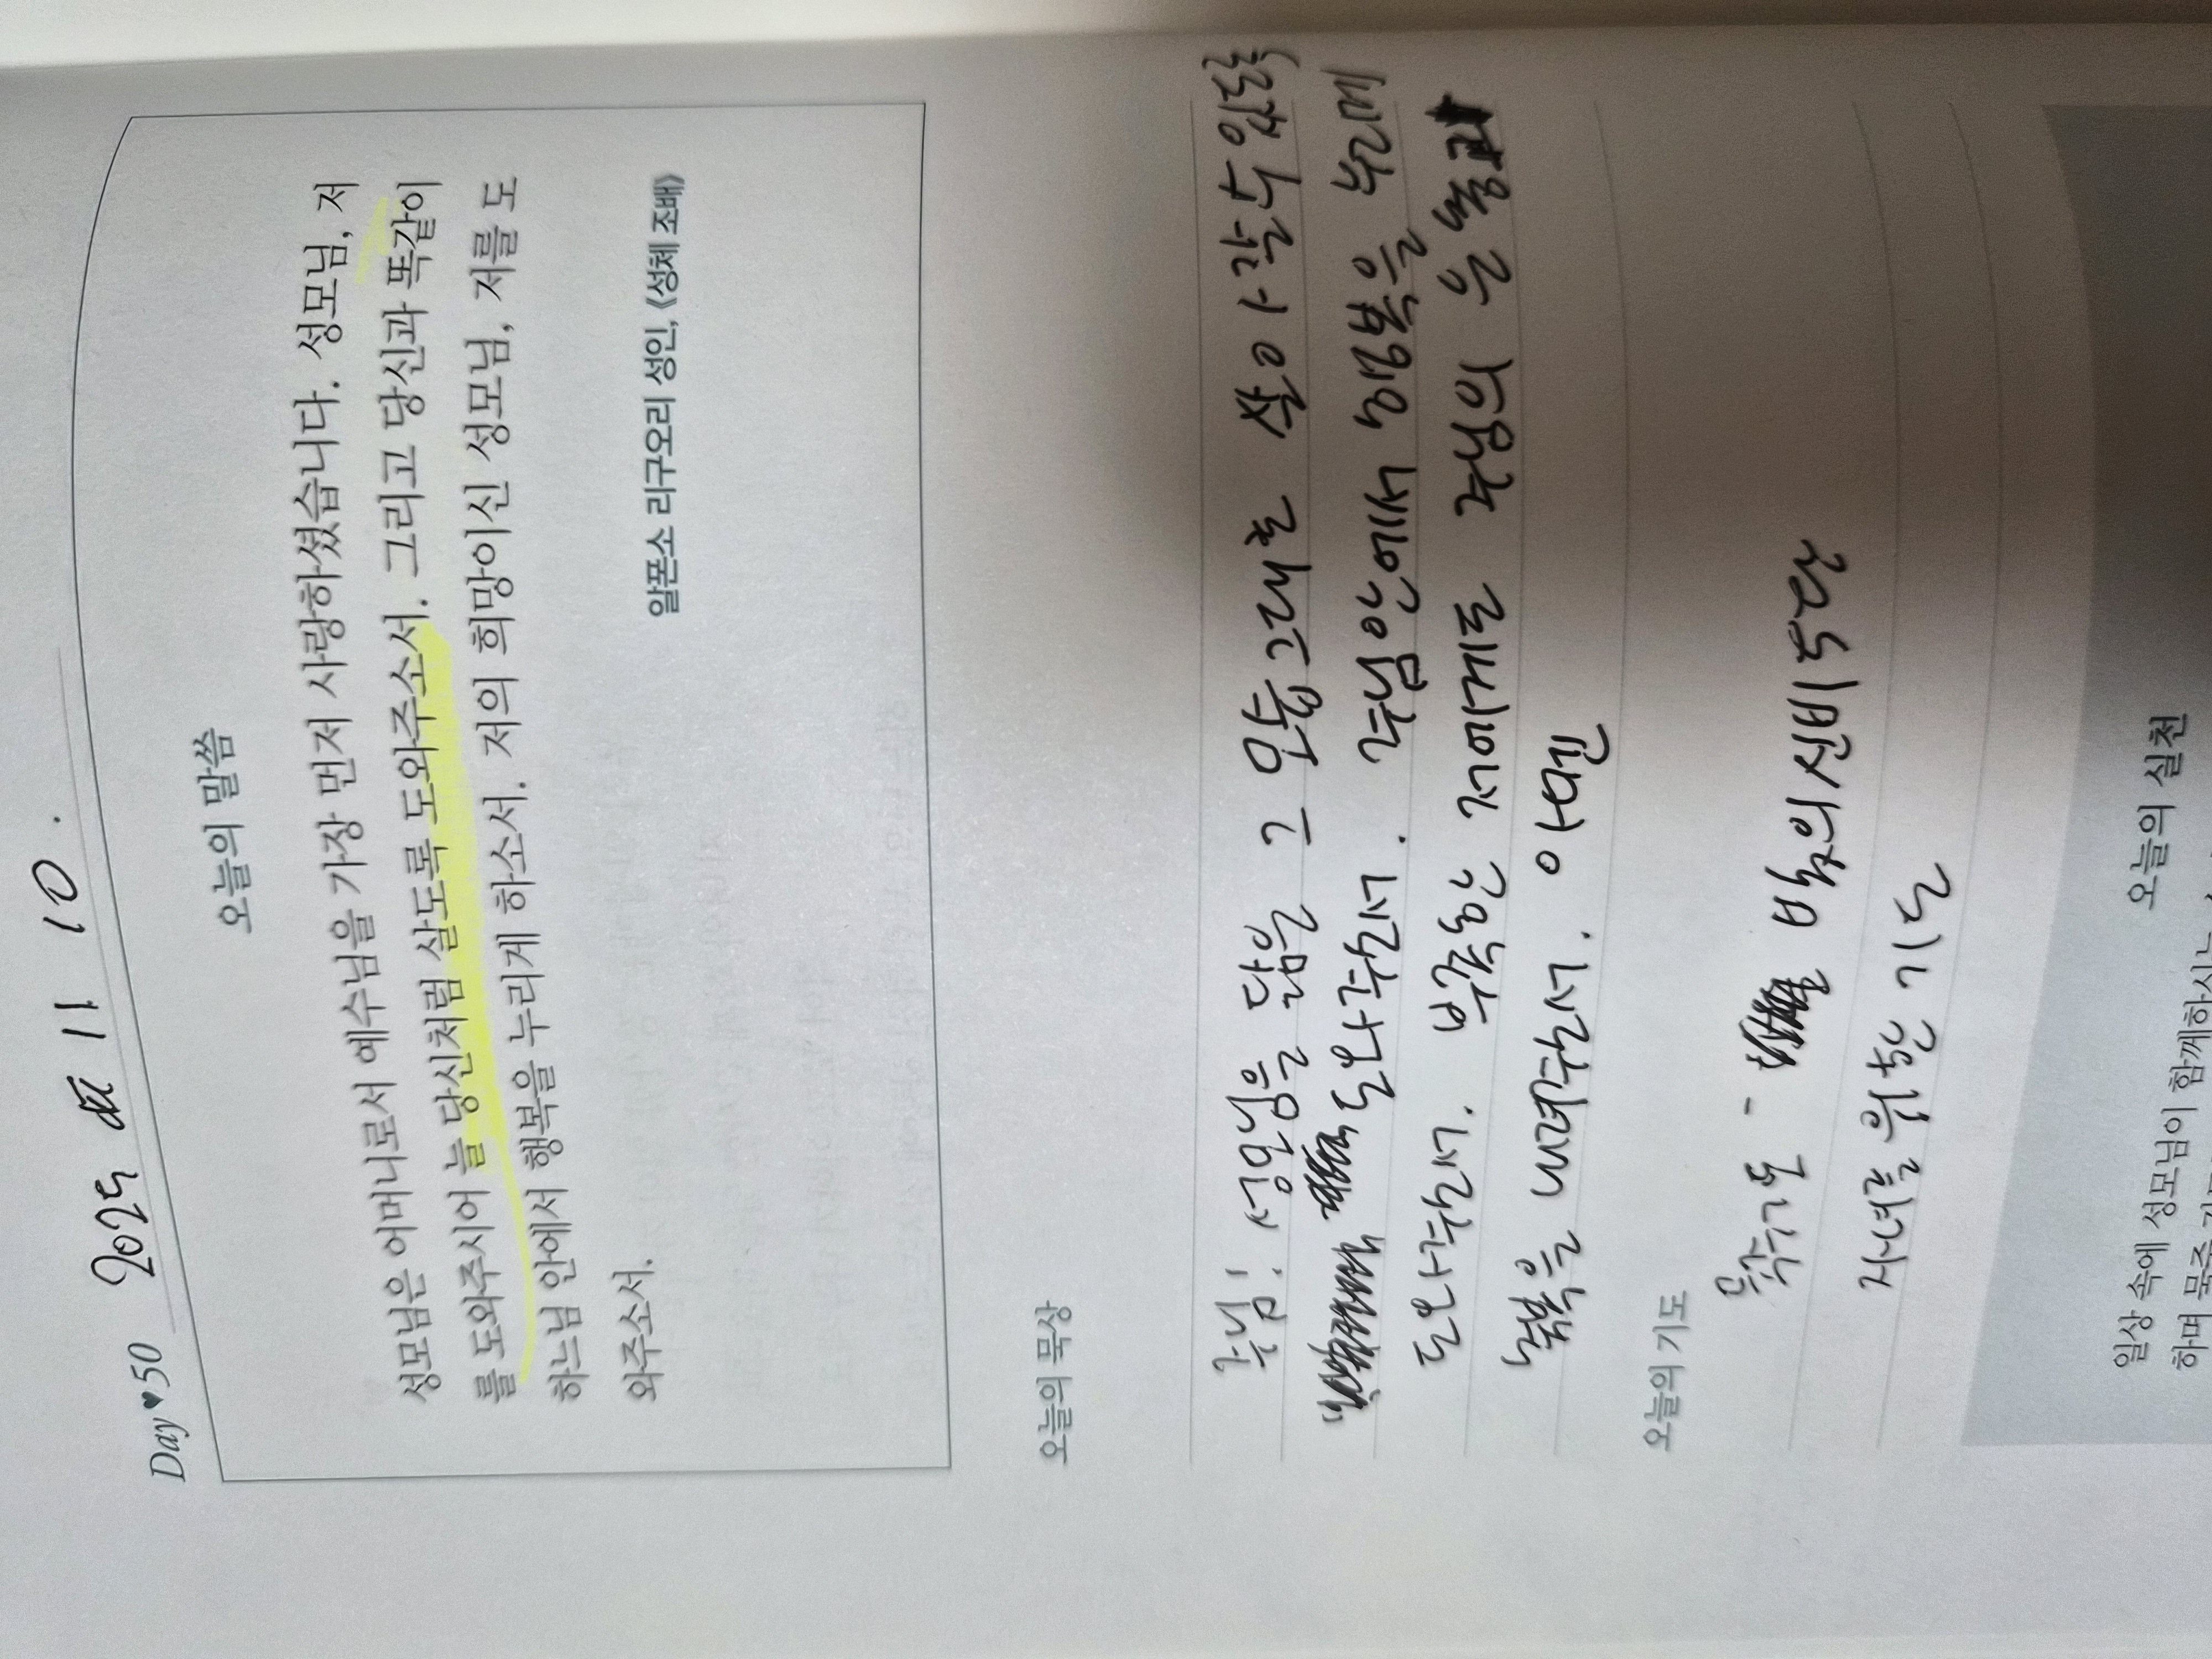 Day♥50 2025 11 10.
오늘의 말씀
성모님은 어머니로서 예수님을 가장 먼저 사랑하셨습니다. 성모님, 저
를 도와주시어 늘 당신처럼 살도록 도와주소서. 그리고 당신과 똑같이
하느님 안에서 행복을 누리게 하소서. 저의 희망이신 성모님, 저를 도
와주소서.
알폰소 리구오리 성인, 《성체 조배》
오늘의 묵상
주님! 성모님을 닮은 그 모습 그대로 살아갈 수 있도록
도와주소서. 주님 안에서 행복을 누리게
도와주소서. 부족한 저에게도 주님의 은총과
축복을 내려주소서. 아멘
오늘의 기도
묵주기도 - 빛의 신비 5단
자녀를 위한 기도
오늘의 실천
일상 속에 성모님이 함께하시는
하며 묵주